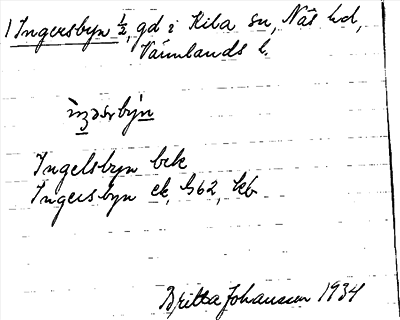 1 Ingersbyn ½, gd i Kila sn, Näs hd,
Värmlands l.
ìŋərbýn
Ingelsbyn bek
Ingersbyn ek, G62, kb
Britta Johansson 1934